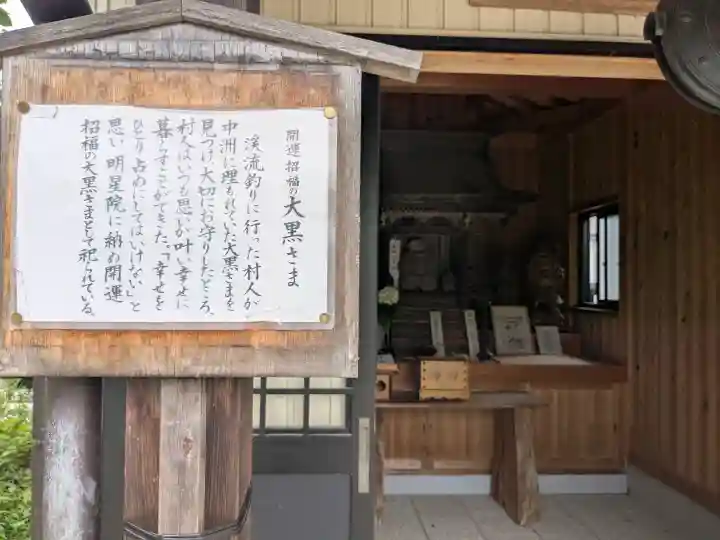 開運招福の大黒さま
渓流釣りに行った村人が
中洲に埋もれていた大黒さまを
見つけ、大切にお守りしたところ、
村人はいつも思いが叶い幸せに
暮らすことができた。「幸せを
ひとり占めにしてはいけない」と
思い明星院に納め開運
招福の大黒さまとして祀られている。